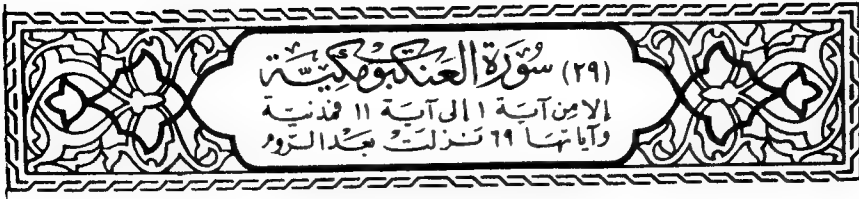 (٢٩) سُورَة العَنكبُوت مَكِيَّة
إلا مِن آيَة ١ إلى آيَة ١١ فمَدنيَّة
وآياتهَا ٦٩ نَزلتْ بعَد الرّوم